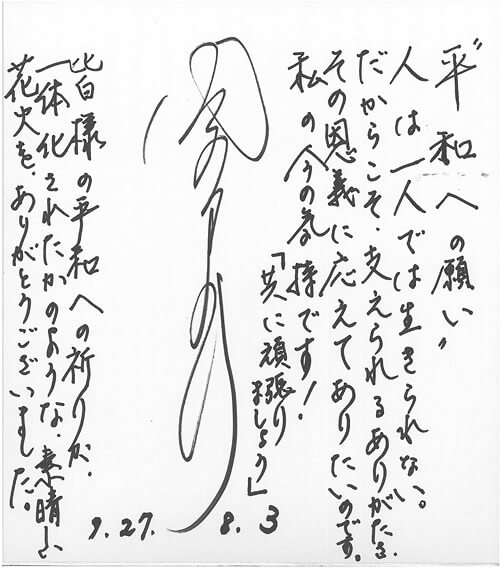 “平和への願い”
人は一人では生きられない。
だからこそ、支えられるありがたさ、
その恩義に応えてありたいのです。
私の今の気持です！
「共に頑張り
ましょう」
皆様の平和への祈りが、
一体化されたかのような、素晴しい
花火を、ありがとうございました。
9.27. 8.3